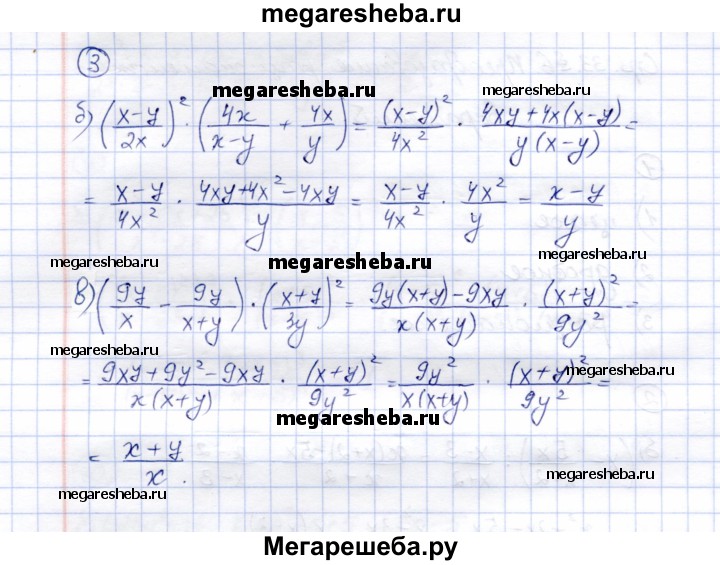 megaresheba.ru
③
megaresheba.ru megaresheba.ru
б) ((x-y)/2x)² · (4x/(x-y) + 4x/y) = (x-y)²/4x² · (4xy+4x(x-y))/(y(x-y)) =
= (x-y)/4x² · (4xy+4x²-4xy)/y = (x-y)/4x² · 4x²/y = (x-y)/y
megaresheba.ru megaresheba.ru
в) (9y/x - 9y/(x+y)) · ((x+y)/3y)² = (9y(x+y)-9xy)/(x(x+y)) · (x+y)²/9y² =
= (9xy+9y²-9xy)/(x(x+y)) · (x+y)²/9y² = 9y²/(x(x+y)) · (x+y)²/9y² =
megaresheba.ru
megaresheba.ru
= (x+y)/x .
megaresheba.ru megaresheba.ru
Мегарешеба.ру